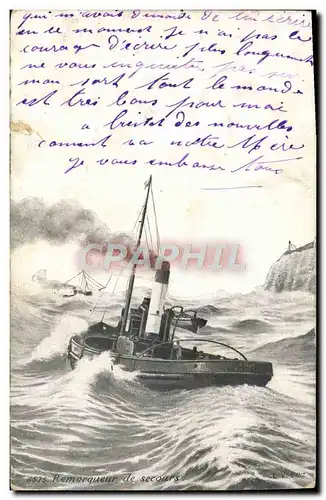 qui m'avait demandé de lui écrire
en ce moment je n'ai pas le
courage d'écrire plus longuement
ne vous inquiétez pas sur
mon sort tout le monde
est très bons pour moi
a bientôt des nouvelles
comment va notre Mère
je vous embrasse tous
CPARAMA.COM
3575. Remorqueur de secours.